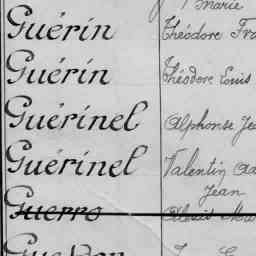 Marie
Guérin Théodore Fra
Guérin Théodore Louis
Guérinel Alphonse Je
Guérinel Valentin
Jean
Guerro Alexis